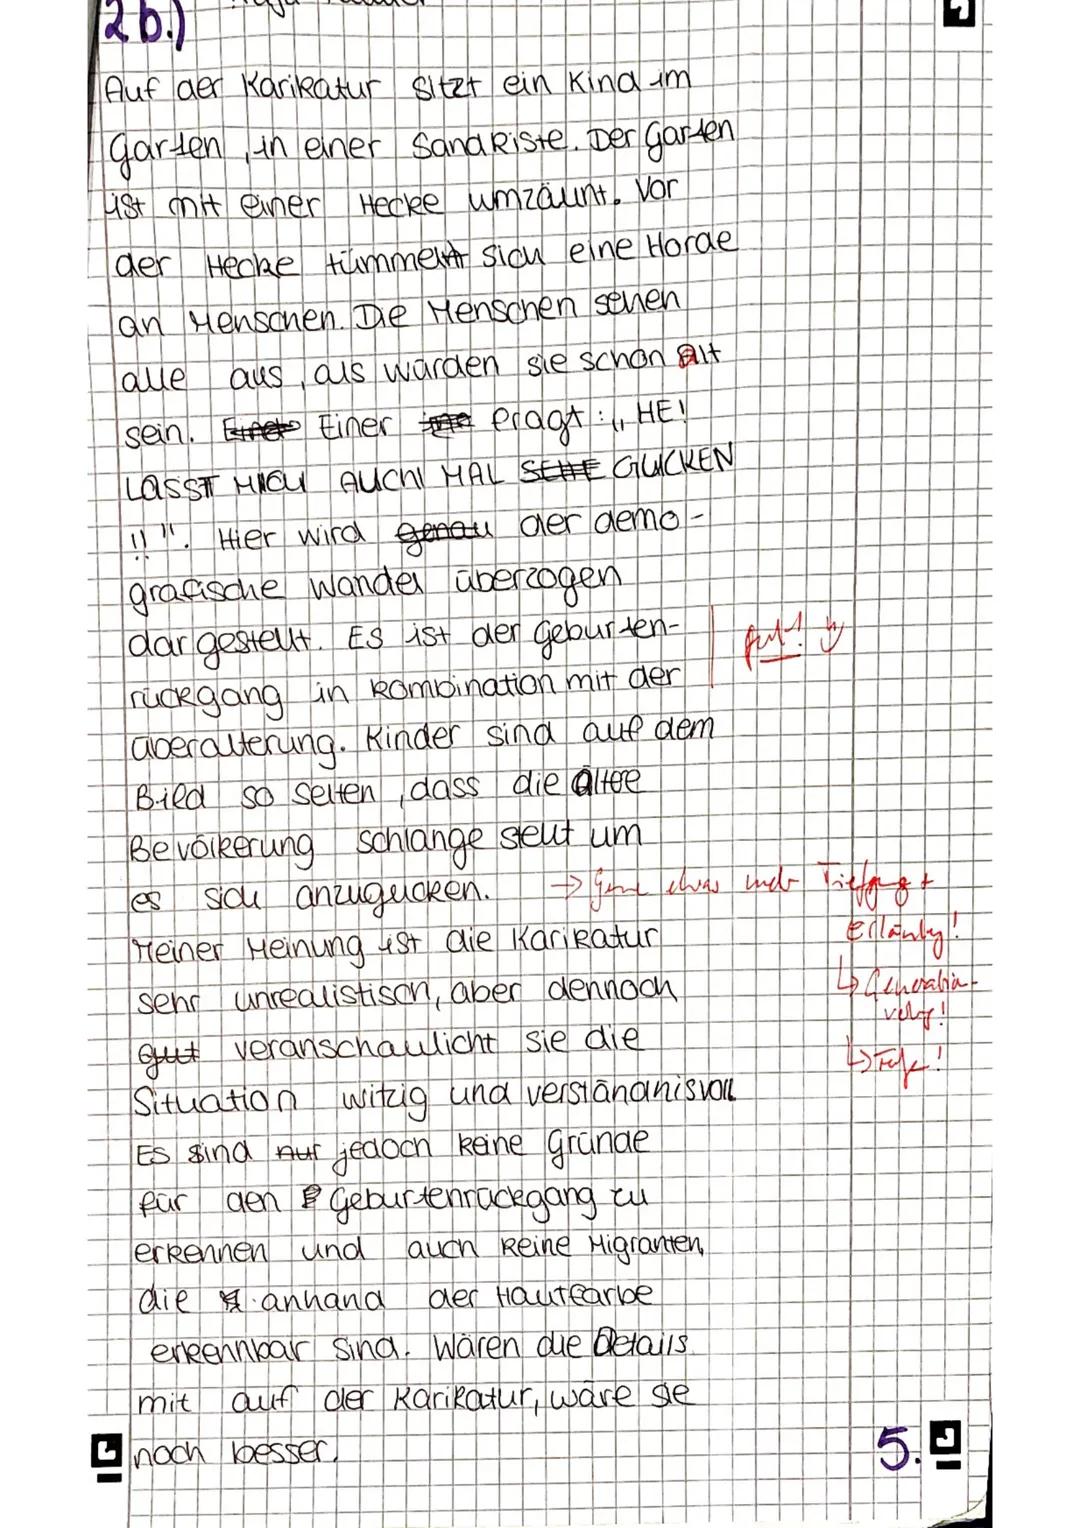 2b.)
Auf der Karikatur sitzt ein Kind im
Garten, in einer Sandkiste. Der Garten
ist mit einer Hecke umzäunt. Vor
der Hecke tümmelt sich eine Horde
an Menschen. Die Menschen sehen
alle aus, als würden sie schon alt
sein. Einer fragt: „HE!
LASST MICH AUCH MAL GUCKEN
!!". Hier wird der demo-
grafische Wandel überzogen
dargestellt. Es ist der Geburten-
gut!
rückgang in Kombination mit der
überalterung. Kinder sind auf dem
Bild so selten, dass die ältee
Bevölkerung schlange stellt um
es sich anzugucken.
→ Gerne etwas mehr Tiefgang +
Meiner Meinung ist die Karikatur
sehr unrealistisch, aber dennoch
veranschaulicht sie die
Situation witzig und verständnisvoll
Es sind jedoch keine Gründe
für den Geburtenrückgang zu
erkennen und auch keine Migranten,
die anhand der Hautfarbe
erkennbar sind. Wären die Details
mit auf der Karikatur, wäre sie
noch besser.
5.